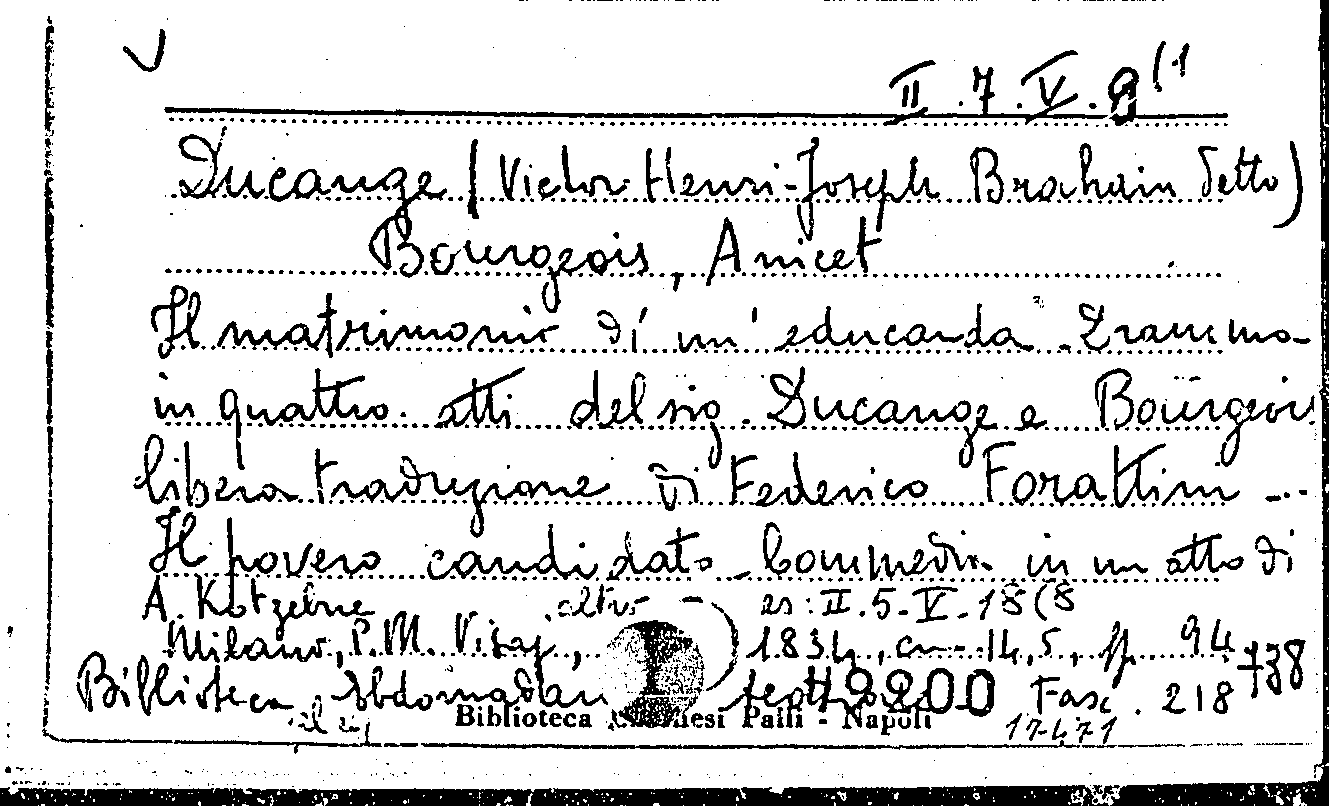 II.7.V.9(1
Ducange (Victor-Henri-Joseph Brahain detto)
Bourgeois, Anicet
Il matrimonio di un'educanda - Dramma
in quattro atti del sig. Ducange e Bourgeois
libera traduzione di Federico Forattini ...
Il povero candidato - Commedia in un atto di
A. Kotzebue altro es: II.5.V.18(8
Milano, P.M. Visaj, 1834, cm. 14,5, pp. 94 +38
Biblioteca Ebdomadaria 49200 Fasc. 218
Biblioteca Lucchesi Palli - Napoli
17471